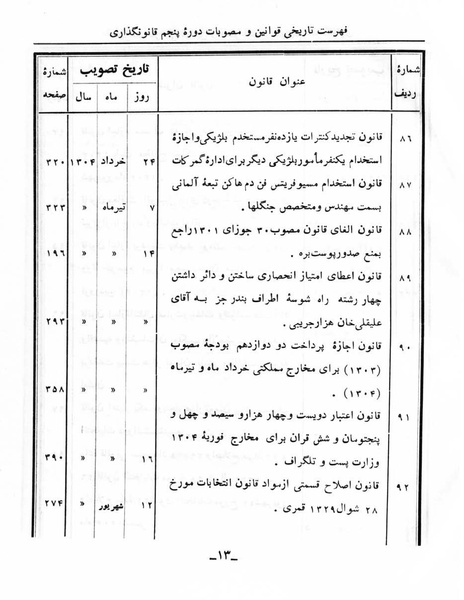 فهرست تاریخی قوانین و مصوبات دورهٔ پنجم قانونگذاری
شمارهٔ ردیف عنوان قانون تاریخ تصویب شمارهٔ صفحه
روز ماه سال
۸۶ قانون تجدید کنترات یازده نفر مستخدم بلژیکی و اجازهٔ
استخدام یکنفر مأمور بلژیکی دیگر برای ادارهٔ گمرکات ۲۴ خرداد ۱۳۰۴ ۳۲۰
۸۷ قانون استخدام مسیو فریتس فن دم هاکن تبعهٔ آلمانی
بسمت مهندس و متخصص جنگلها . ۷ تیرماه » ۳۲۳
۸۸ قانون الغای قانون مصوب ۳۰ جوزای ۱۳۰۱ راجع
بمنع صدور پوست بره . ۱۴ » » ۱۹۶
۸۹ قانون اعطای امتیاز انحصاری ساختن و دائر داشتن
چهار رشته راه شوسهٔ اطراف بندر جز به آقای
علیقلی خان هزار جریبی . » » » ۲۹۳
۹۰ قانون اجازهٔ پرداخت دو دوازدهم بودجهٔ مصوب
(۱۳۰۳) برای مخارج مملکتی خرداد ماه و تیرماه
(۱۳۰۴) . » » » ۳۵۸
۹۱ قانون اعتبار دویست و چهار هزار و سیصد و چهل و
پنجتومان و شش قران برای مخارج فوریهٔ ۱۳۰۴
وزارت پست و تلگراف . ۱۶ » » ۳۹۰
۹۲ قانون اصلاح قسمتی از مواد قانون انتخابات مورخ
۲۸ شوال ۱۳۲۹ قمری . ۱۲ شهریور » ۲۷۴
ـ۱۳ـ